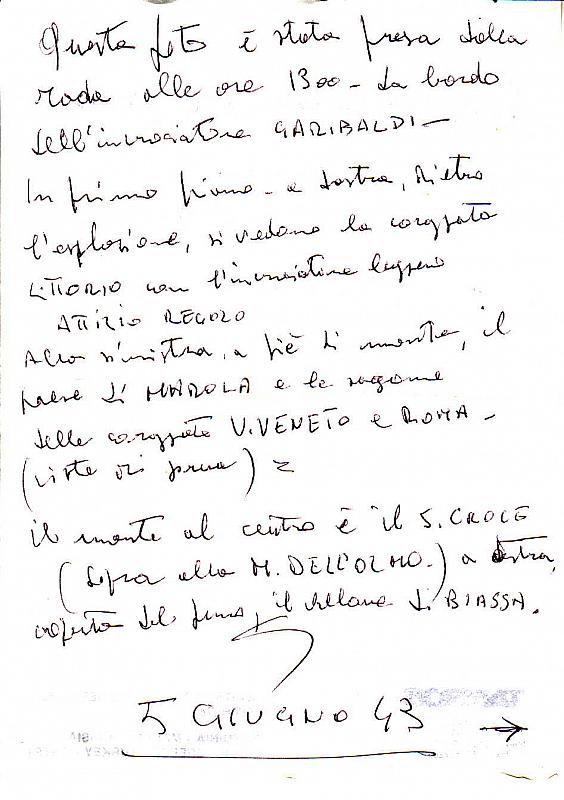 Questa foto è stata presa dalla
rada alle ore 1300 - da bordo
dell'incrociatore GARIBALDI -
In primo piano - a destra, dietro
l'esplosione, si vedono la corazzata
LITTORIO con l'incrociatore leggero
ATTILIO REGOLO
Alla sinistra, a piè di monte, il
paese di MAROLA e le sagome
delle corazzate V. VENETO e ROMA -
(viste di prua)
il monte al centro è il S. CROCE
(sopra alla M. DELL'OLMO.) a destra,
coperto dal fumo, il vallone di BIASSA.
5 GIUGNO 43 →